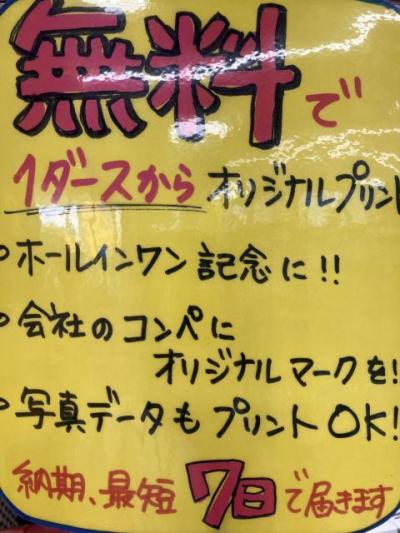 無料で
1ダースからオリジナルプリント
○ホールインワン記念に!!
○会社のコンペに
オリジナルマークを!
○写真データもプリントOK!
納期、最短7日で届きます